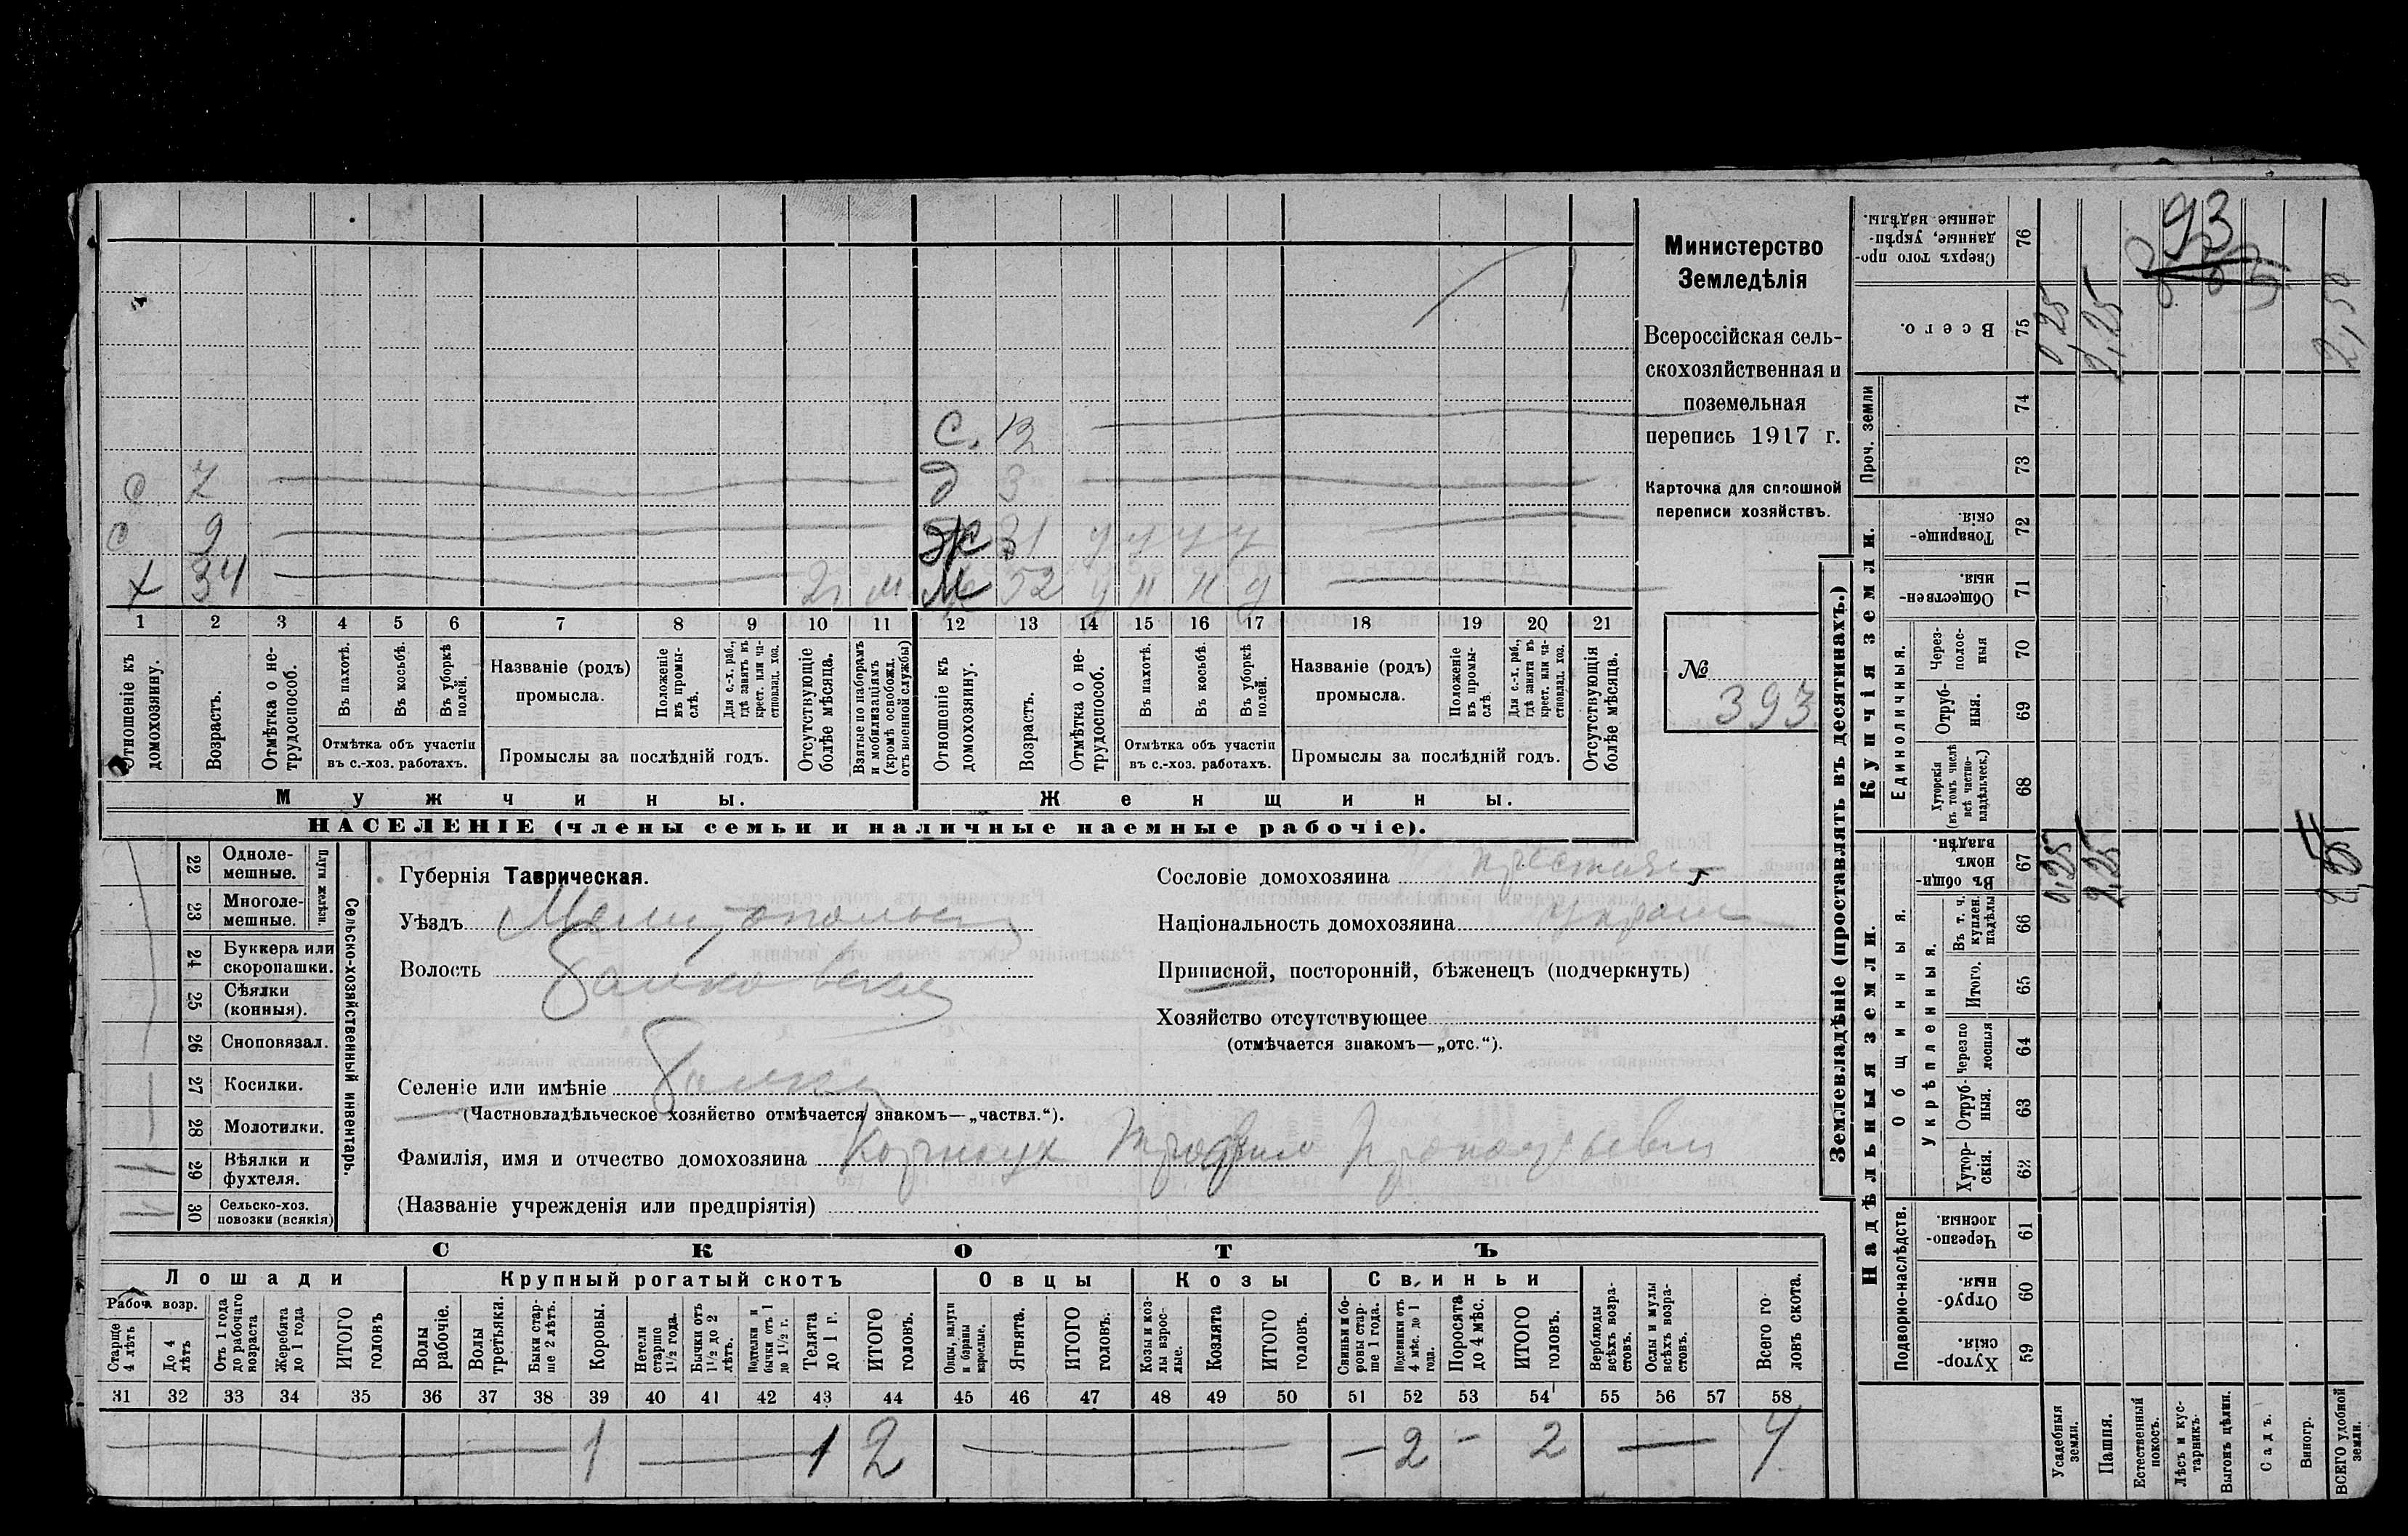 Министерство
Земледѣлія
Всероссійская сель-
скохозяйственная и
поземельная
перепись 1917 г.
Карточка для сплошной
переписи хозяйствъ.
№
393
93
С. 13
с 7
д 3
с 9
ж 31 у у у у
х 34
21 м
м 52 у
1 2 3 4 5 6 7 8 9 10 11 12 13 14 15 16 17 18 19 20 21
Отношеніе къ домохозяину.
Возрастъ.
Отмѣтка о не-трудоспособ.
Въ пахотѣ.
Въ косьбѣ.
Въ уборкѣ полей.
Отмѣтка объ участіи
въ с.-хоз. работахъ.
Названіе (родъ)
промысла.
Положеніе въ промы-слѣ.
Для с.-х. раб., гдѣ занятъ въ крест. или ча-стновлад. хоз.
Промыслы за послѣдній годъ.
Отсутствующіе болѣе мѣсяца.
Взятые по наборамъ и мобилизаціямъ (кромѣ освобожд. отъ военной службы)
Отношеніе къ домохозяину.
Возрастъ.
Отмѣтка о не-трудоспособ.
Въ пахотѣ.
Въ косьбѣ.
Въ уборкѣ полей.
Отмѣтка объ участіи
въ с.-хоз. работахъ.
Названіе (родъ)
промысла.
Положеніе въ промы-слѣ
Для с.-х. раб., гдѣ занята въ крест. или ча-стновлад. хоз.
Промыслы за послѣдній годъ.
Отсутствующія болѣе мѣсяца.
Мужчины.
Женщины.
НАСЕЛЕНІЕ (члены семьи и наличные наемные рабочіе).
Сельско-хозяйственный инвентарь.
Плуги желѣзн.
22 Одноле-мешные.
23 Многоле-мешные.
24 Буккера или скоропашки.
25 Сѣялки (конныя).
26 Сноповязал.
27 Косилки.
28 Молотилки.
29 Вѣялки и фухтеля.
30 Сельско-хоз. повозки (всякія)
Губернія Таврическая.
Уѣздъ
Волость
Селеніе или имѣніе Балки
(Частновладѣльческое хозяйство отмѣчается знакомъ—„частвл.“).
Фамилія, имя и отчество домохозяина
(Названіе учрежденія или предпріятія)
Сословіе домохозяина
Національность домохозяина
Приписной, посторонній, бѣженецъ (подчеркнуть)
Хозяйство отсутствующее
(отмѣчается знакомъ—„отс.“).
СКОТЪ
Лошади
Крупный рогатый скотъ
Овцы
Козы
Свиньи
Рабоч. возр.
Старше 4 лѣтъ
До 4 лѣтъ
Отъ 1 года до рабочаго возраста
Жеребята до 1 года
ИТОГО головъ
Волы рабочіе.
Волы третьяки.
Быки стар-ше 2 лѣтъ.
Коровы.
Нетели старше 1½ года.
Бычки отъ 1½ до 2 лѣтъ.
Подтелки и бычки отъ 1 до 1½ г.
Телята до 1 г.
ИТОГО головъ.
Овцы, валухи и бараны взрослые.
Ягнята.
ИТОГО головъ.
Козы и коз-лы взрос-лые.
Козлята
ИТОГО головъ.
Свиньи и бо-ровы стар-ше 1 года.
Подсвинки отъ 4 мѣс. до 1 года.
Поросята до 4 мѣс.
ИТОГО головъ.
Верблюды всѣхъ возра-стовъ.
Ослы и мулы всѣхъ возра-стовъ.
Всего го ловъ скота.
31 32 33 34 35 36 37 38 39 40 41 42 43 44 45 46 47 48 49 50 51 52 53 54 55 56 57 58
1 1 2 2 2 4
Землевладѣніе (проставлять въ десятинахъ.)
Надѣльныя земли.
Купчія земли.
Проч. земли
Подворно-наслѣдств.
Общинныя.
Укрѣпленныя.
Единоличныя.
Хутор-скія. 59
Отруб-ныя. 60
Черезпо-лосныя. 61
Хутор-скія. 62
Отруб-ныя. 63
Черезпо лосныя 64
Итого. 65
Въ т. ч. куплен. надѣлы 66
Въ общи-номъ владѣн. 67
Хуторскія (въ томъ числѣ всѣ частно-владѣльческ.) 68
Отруб-ныя. 69
Через-полос-ныя 70
Обществен-ныя. 71
Товарище-скія. 72
73
74
Всего. 75
Сверхъ того про-данные, укрѣп-ленные надѣлы. 76
Усадебныя земли.
Пашня.
Естественный покосъ.
Лѣсъ и кус-тарникъ.
Выгонъ цѣлин.
Садъ.
Виногр.
ВСЕГО удобной земли.
0,25
2,25
0,25
2,25
2,50